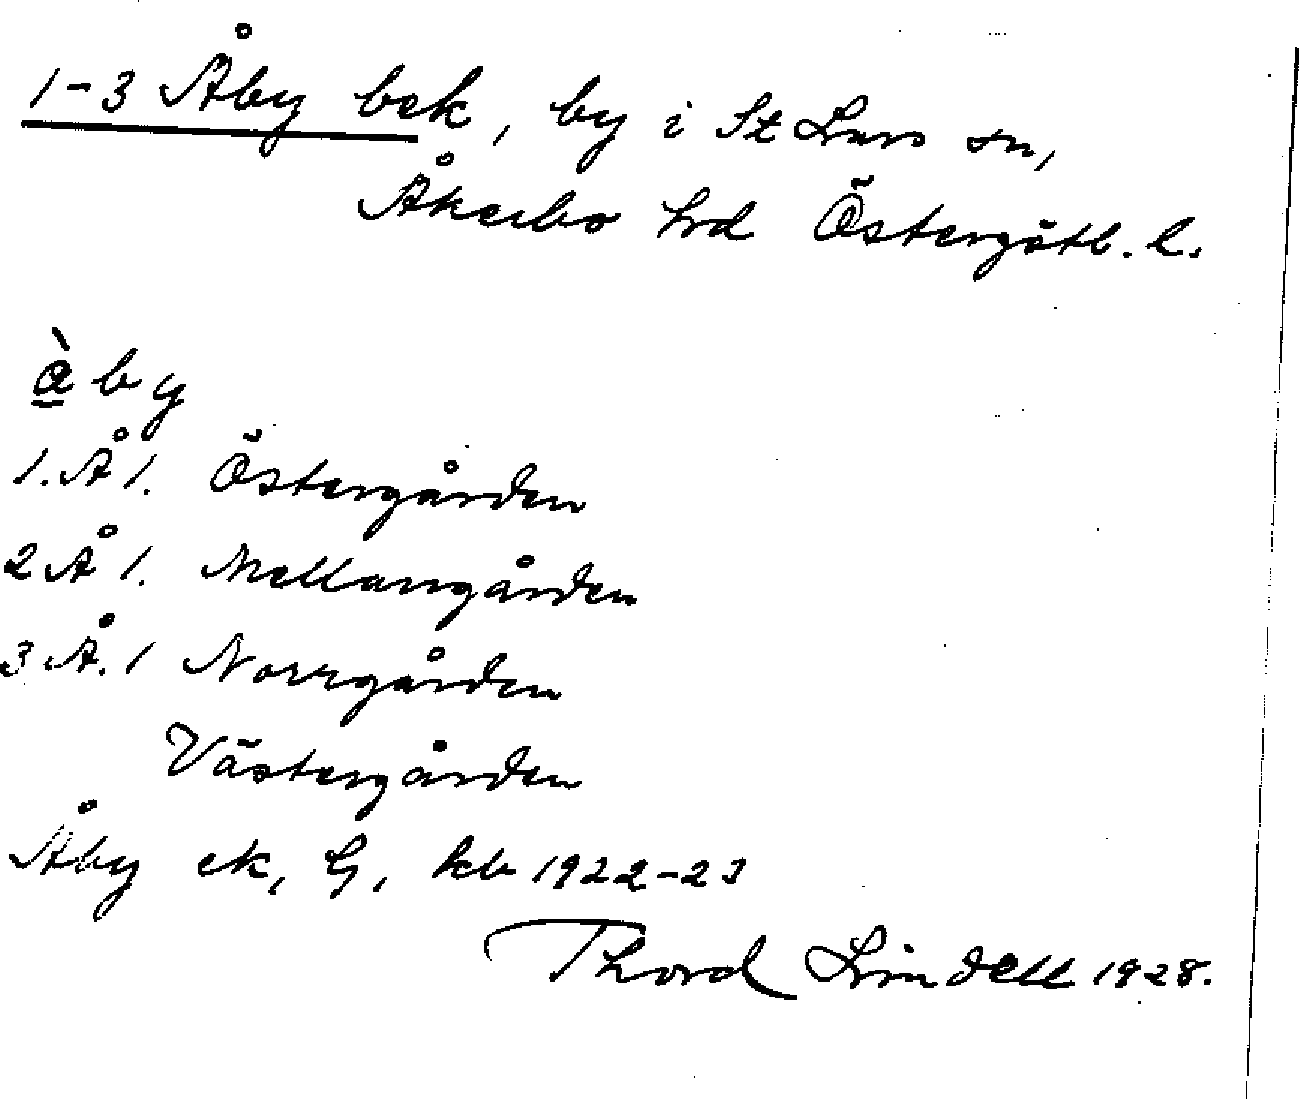 1-3 Åby bek, by i St Lars sn,
Åkerbo hrd Östergötl. l.
å̀ b y
1. Å 1. Östergården
2 Å 1. Mellangården
3 Å. 1 Norrgården
Västergården
Åby ek, G, kb 1922-23
Thord Lindell 1928.